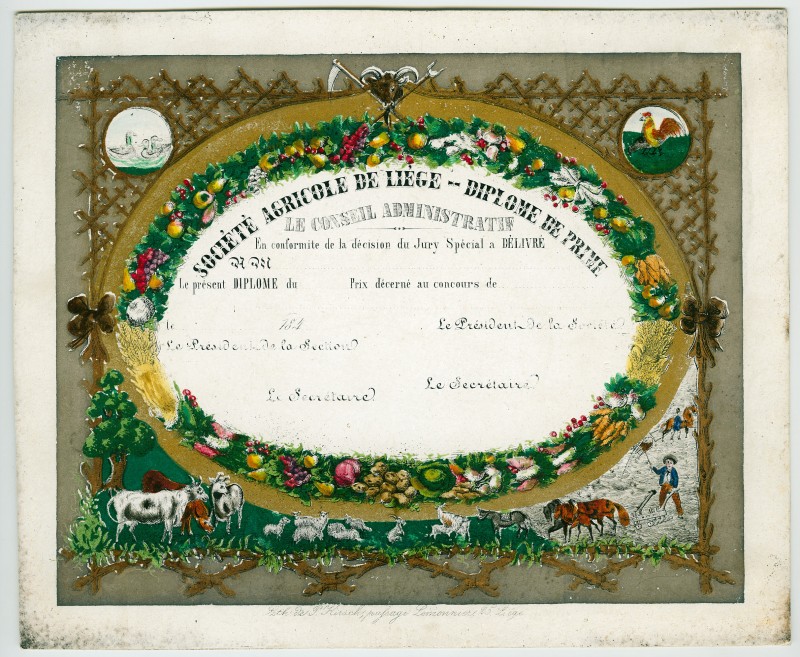 SOCIÉTÉ AGRICOLE DE LIÉGE -- DIPLOME DE PRIME
LE CONSEIL ADMINISTRATIF
En conformite de la décision du Jury Spécial a DÉLIVRÉ
Le présent DIPLOME du Prix décerné au concours de
le 184
Le Président de la Société
Le Président de la Section
Le Secrétaire
Le Secrétaire
Lith. de P. Kirsch, passage Lemonnier Liége